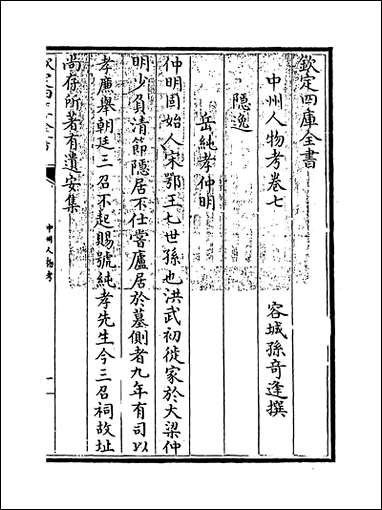 欽定四庫全書
中州人物考卷七
容城孫奇逢撰
隱逸
岳純孝仲明
仲明固始人宋鄂王七世孫也洪武初徙家於大梁仲
明少負清節隱居不仕嘗廬居於墓側者九年有司以
孝廉舉朝廷三召不起賜號純孝先生今三召祠故址
尚存所著有遺安集
中州人物考
一